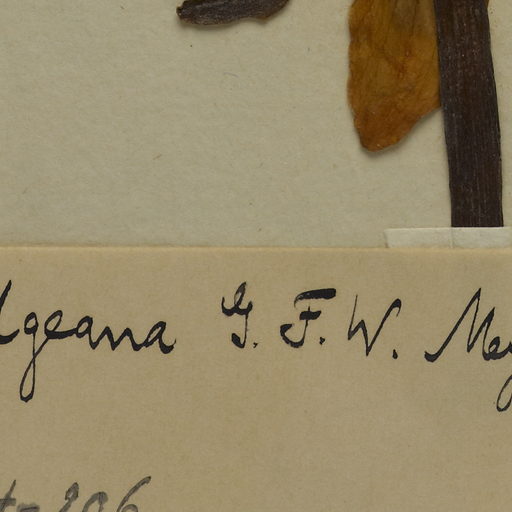 lgeana G. F. W. Mey
t-206